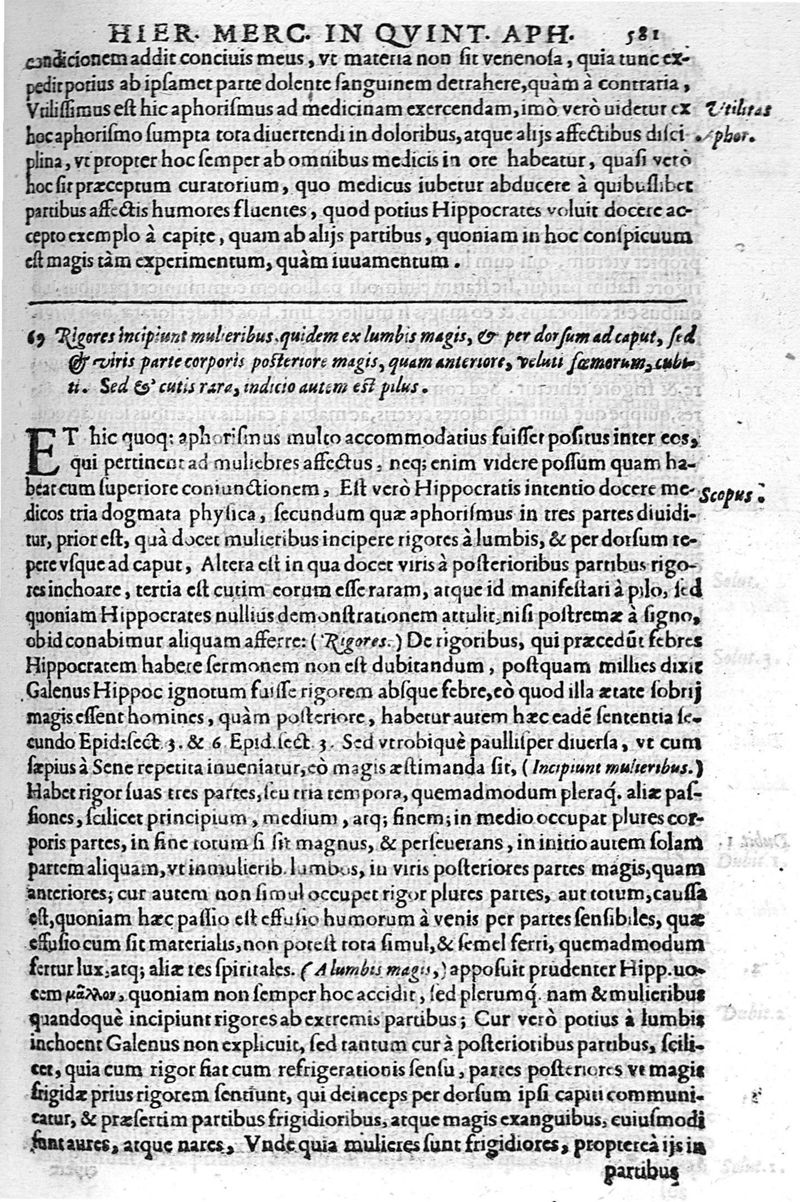 HIER. MERC. IN QVINT. APH. 581
condicionem addit conciuis meus, vt materia non sit venenosa, quia tunc ex-
pedit potius ab ipsamet parte dolente sanguinem detrahere, quàm à contraria,
Vtilissimus est hic aphorismus ad medicinam exercendam, imò verò uidetur ex
Vtilitas
hoc aphorismo sumpta tota diuertendi in doloribus, atque alijs affectibus disci
aphor.
plina, vt propter hoc semper ab omnibus medicis in ore habeatur, quasi verò
hoc sit præceptum curatorium, quo medicus iubetur abducere à quibuslibet
partibus affectis humores fluentes, quod potius Hippocrates voluit docere ac-
cepto exemplo à capite, quam ab alijs partibus, quoniam in hoc conspicuum
est magis tàm experimentum, quàm iuuamentum.
69 Rigores incipiunt mulieribus quidem ex lumbis magis, & per dorsum ad caput, sed
& viris parte corporis posteriore magis, quam anteriore, veluti fœmorum, cubi-
ti. Sed & cutis rara, indicio autem est pilus.
ET hic quoq; aphorismus multo accommodatius fuisset positus inter eos,
qui pertinent ad muliebres affectus, neq; enim videre possum quam ha-
beat cum superiore coniunctionem, Est verò Hippocratis intentio docere me-
Scopus.
dicos tria dogmata physica, secundum quæ aphorismus in tres partes diuidi-
tur, prior est, quà docet mulieribus incipere rigores à lumbis, & per dorsum re-
pere vsque ad caput, Altera est in qua docet viris à posterioribus partibus rigo-
res inchoare, tertia est cutim eorum esse raram, atque id manifestari à pilo, sed
quoniam Hippocrates nullius demonstrationem attulit, nisi postremæ à signo,
ob id conabimur aliquam afferre: (Rigores.) De rigoribus, qui præcedūt febres
Hippocratem habere sermonem non est dubitandum, postquam millies dixit
Galenus Hippoc ignotum fuisse rigorem absque febre, eò quod illa ætate sobrij
magis essent homines, quàm posteriore, habetur autem hæc eadē sententia se-
cundo Epid: sect. 3. & 6 Epid. sect. 3. Sed vtrobiquè paullisper diuersa, vt cum
sæpius à Sene repetita inueniatur, eò magis æstimanda sit, (Incipiunt mulieribus.)
Habet rigor suas tres partes, seu tria tempora, quemadmodum pleraq. aliæ pas-
siones, scilicet principium, medium, atq; finem; in medio occupat plures cor-
poris partes, in fine totum si sit magnus, & perseuerans, in initio autem solam
partem aliquam, vt in mulierib. lumbos, in viris posteriores partes magis, quam
anteriores; cur autem non simul occupet rigor plures partes, aut totum, caussa
est, quoniam hæc passio est effusio humorum à venis per partes sensibiles, quæ
effusio cum sit materialis, non potest tota simul, & semel ferri, quemadmodum
fertur lux, atq; aliæ res spiritales. (A lumbis magis,) apposuit prudenter Hipp. uo-
cem μᾶλλον, quoniam non semper hoc accidit, sed plerumq́. nam & mulieribus
quandoquè incipiunt rigores ab extremis partibus; Cur verò potius à lumbis
inchoent Galenus non explicuit, sed tantum cur à posterioribus partibus, scili-
cet, quia cum rigor fiat cum refrigerationis sensu, partes posteriores vt magis
frigidæ prius rigorem sentiunt, qui deinceps per dorsum ipsi capiti communi-
catur, & præsertim partibus frigidioribus, atque magis exanguibus, cuiusmodi
sunt aures, atque nares, Vnde quia mulieres sunt frigidiores, proptereà ijs in
partibus